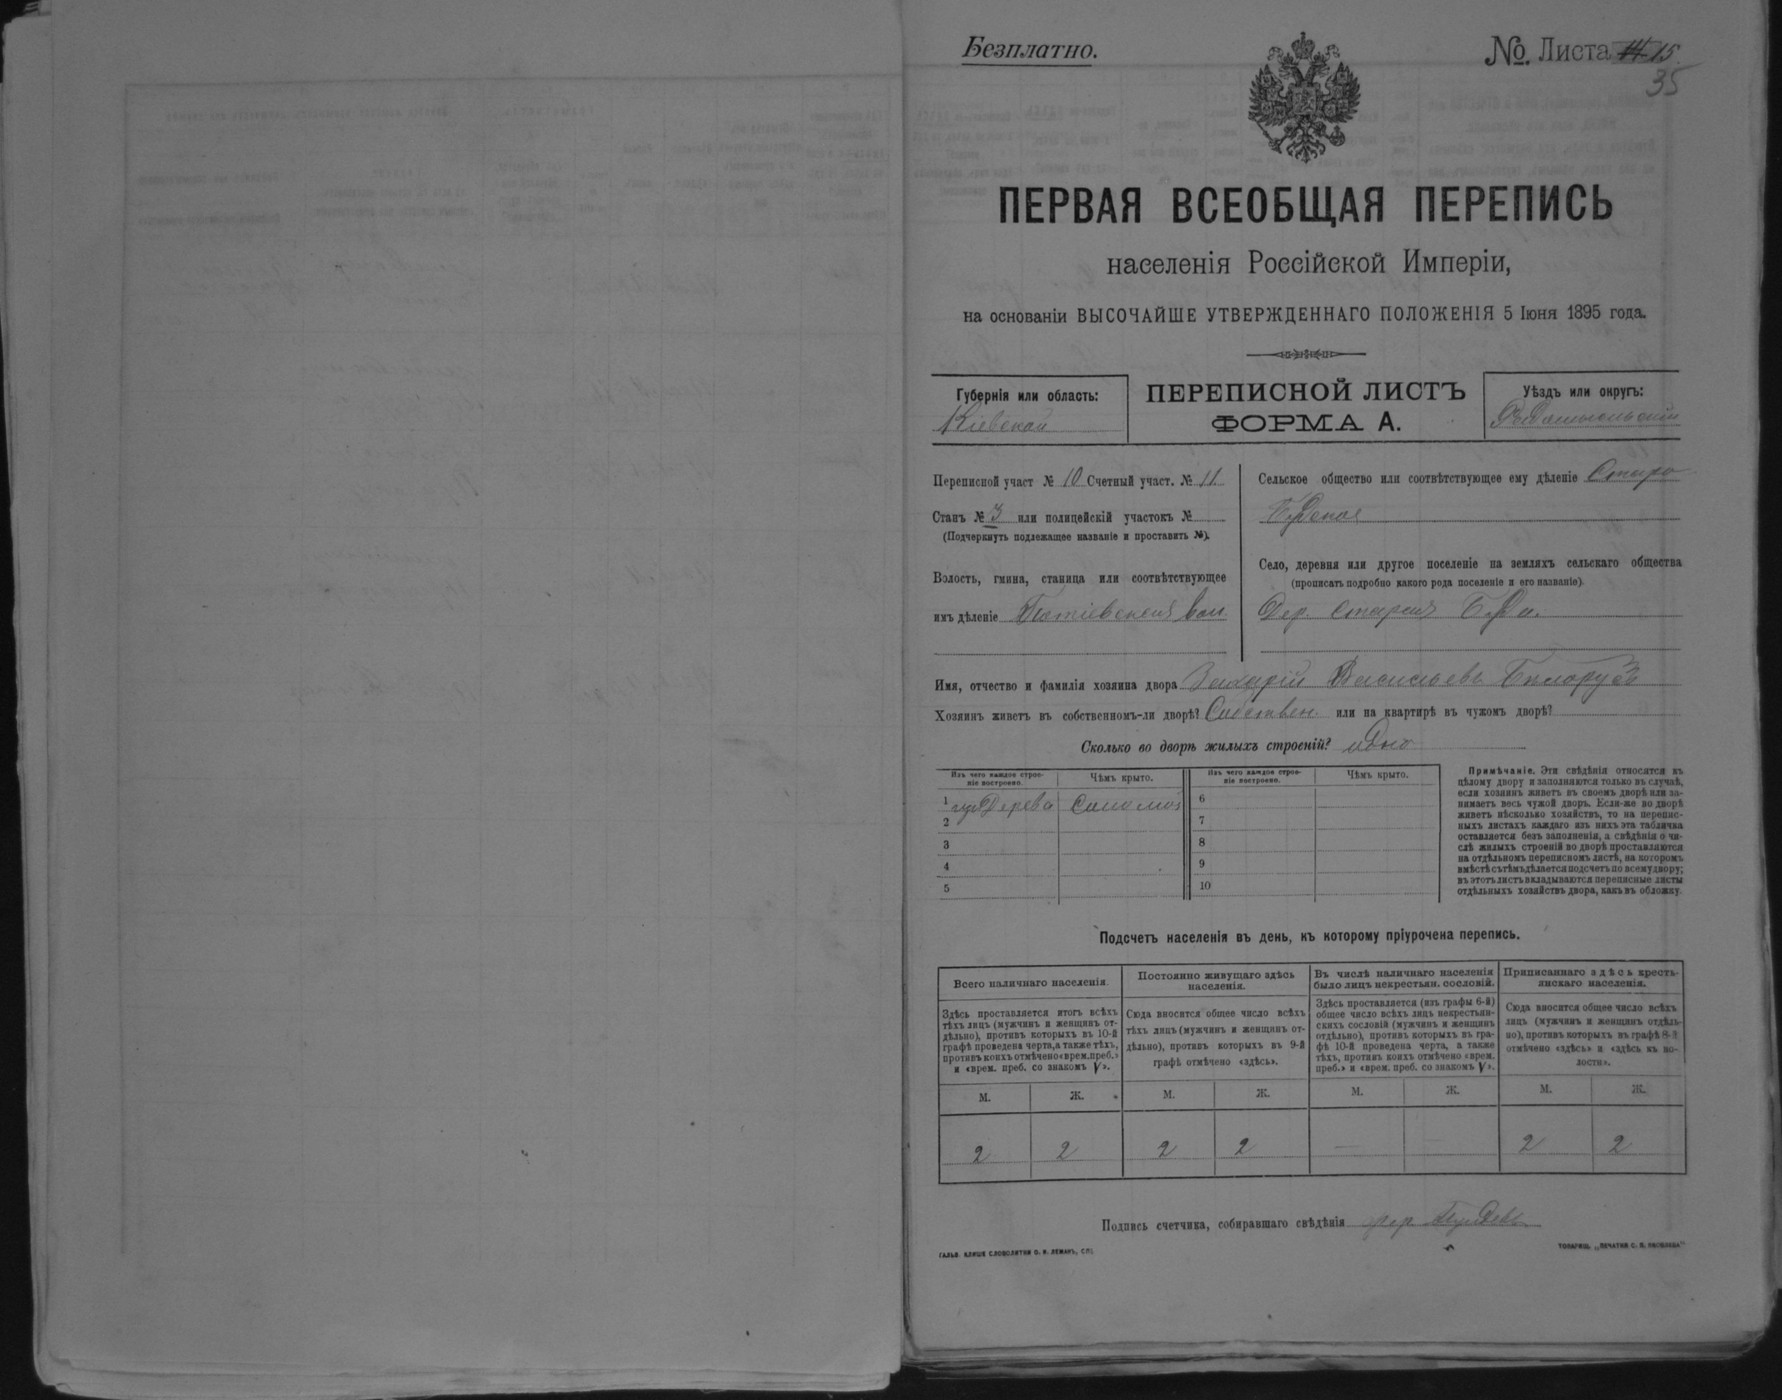 Безплатно.
№ Листа 14 15.
35
ПЕРВАЯ ВСЕОБЩАЯ ПЕРЕПИСЬ
населенія Россійской Имперіи,
на основаніи ВЫСОЧАЙШЕ УТВЕРЖДЕННАГО ПОЛОЖЕНІЯ 5 Іюня 1895 года.
Губернія или область:
Кіевская
ПЕРЕПИСНОЙ ЛИСТЪ
ФОРМА А.
Уѣздъ или округъ:
Радомысльскій
Переписной участ № 10 Счетный участ. № 11.
Станъ № 3 или полицейскій участокъ №
(Подчеркнуть подлежащее названіе и проставить №).
Волость, гмина, станица или соотвѣтствующее
имъ дѣленіе Потіевская вол.
Сельское общество или соотвѣтствующее ему дѣленіе Старо
Будское
Село, деревня или другое поселеніе на земляхъ сельскаго общества
(прописать подробно какого рода поселеніе и его названіе).
Дер. Старая Буда.
Имя, отчество и фамилія хозяина двора Захарій Васильевъ Билорусъ
Хозяинъ живетъ въ собственномъ-ли дворѣ? Собствен. или на квартирѣ въ чужомъ дворѣ?
Сколько во дворѣ жилыхъ строеній? одно
Изъ чего каждое строе-
ніе построено.
Чѣмъ крыто.
Изъ чего каждое строе-
ніе построено.
Чѣмъ крыто.
1 изъ Дерева Соломой
2
3
4
5
6
7
8
9
10
Примѣчаніе. Эти свѣдѣнія относятся къ
цѣлому двору и заполняются только въ случаѣ,
если хозяинъ живетъ въ своемъ дворѣ или за-
нимаетъ весь чужой дворъ. Если-же во дворѣ
живетъ нѣсколько хозяйствъ, то на перепис-
ныхъ листахъ каждаго изъ нихъ эта табличка
оставляется безъ заполненія, а свѣдѣнія о чи-
слѣ жилыхъ строеній во дворѣ проставляются
на отдѣльномъ переписномъ листѣ, на которомъ
вмѣстѣ съ тѣмъ дѣлается подсчетъ по всему двору;
въ этотъ листъ вкладываются переписные листы
отдѣльныхъ хозяйствъ двора, какъ въ обложку.
Подсчетъ населенія въ день, къ которому пріурочена перепись.
Всего наличнаго населенія.
Здѣсь проставляется итогъ всѣхъ
тѣхъ лицъ (мужчинъ и женщинъ от-
дѣльно), противъ которыхъ въ 10-й
графѣ проведена черта, а также тѣхъ,
противъ коихъ отмѣчено «врем. преб.»
и «врем. преб. со знакомъ V».
Постоянно живущаго здѣсь
населенія.
Сюда вносится общее число всѣхъ
тѣхъ лицъ (мужчинъ и женщинъ от-
дѣльно), противъ которыхъ въ 9-й
графѣ отмѣчено «здѣсь».
Въ числѣ наличнаго населенія
было лицъ некрестьян. сословій.
Здѣсь проставляется (изъ графы 6-й)
общее число всѣхъ лицъ некрестьян-
скихъ сословій (мужчинъ и женщинъ
отдѣльно), противъ которыхъ въ гра-
фѣ 10-й проведена черта, а также
тѣхъ, противъ коихъ отмѣчено «врем.
преб.» и «врем. преб. со знакомъ V».
Приписаннаго здѣсь кресть-
янскаго населенія.
Сюда вносится общее число всѣхъ
лицъ (мужчинъ и женщинъ отдѣль-
но), противъ которыхъ въ графѣ 8-й
отмѣчено «здѣсь» и «здѣсь къ во-
лости».
М. Ж. М. Ж. М. Ж. М. Ж.
2 2 2 2 — — 2 2
Подпись счетчика, собиравшаго свѣдѣнія
ГАЛЬВ. КЛИШЕ СЛОВОЛИТНИ О. И. ЛЕМАНЪ, СПБ.
ТОВАРИЩ. „ПЕЧАТНЯ С. П. ЯКОВЛЕВА“